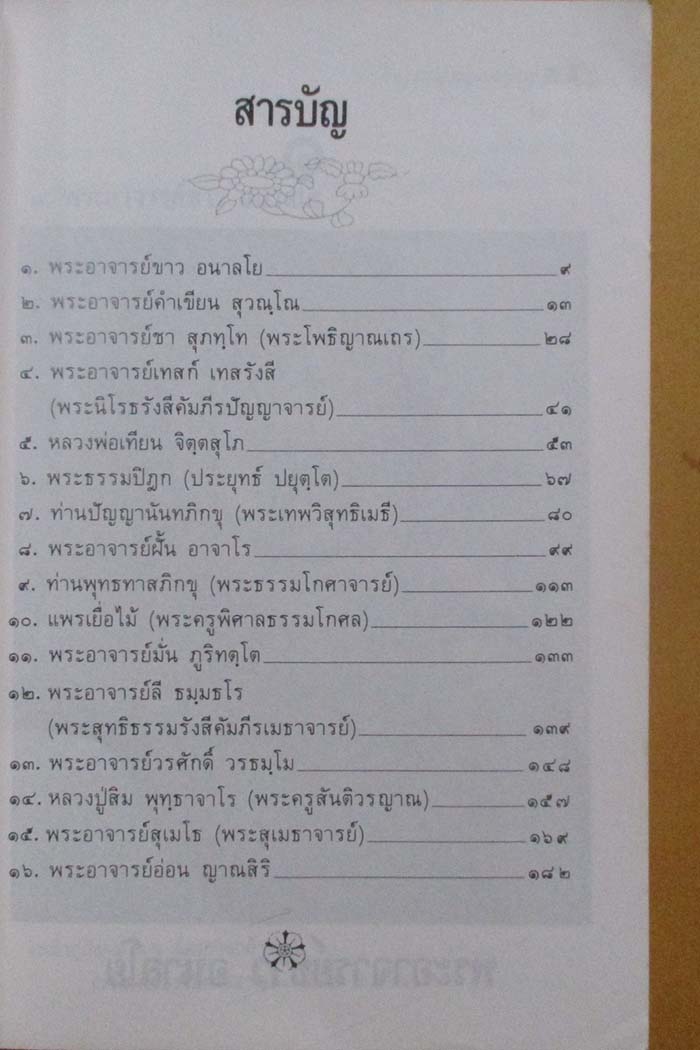 สารบัญ
๑. พระอาจารย์ขาว อนาลโย ๙
๒. พระอาจารย์คำเขียน สุวณฺโณ ๑๓
๓. พระอาจารย์ชา สุภทฺโท (พระโพธิญาณเถร) ๒๘
๔. พระอาจารย์เทสก์ เทสรังสี
(พระนิโรธรังสีคัมภีรปัญญาจารย์) ๔๑
๕. หลวงพ่อเทียน จิตฺตสุโภ ๕๓
๖. พระธรรมปิฎก (ประยุทธ์ ปยุตฺโต) ๖๗
๗. ท่านปัญญานันทภิกขุ (พระเทพวิสุทธิเมธี) ๘๐
๘. พระอาจารย์ฝั้น อาจาโร ๙๙
๙. ท่านพุทธทาสภิกขุ (พระธรรมโกศาจารย์) ๑๑๓
๑๐. แพรเยื่อไม้ (พระครูพิศาลธรรมโกศล) ๑๒๒
๑๑. พระอาจารย์มั่น ภูริทตฺโต ๑๓๓
๑๒. พระอาจารย์ลี ธมฺมธโร
(พระสุทธิธรรมรังสีคัมภีรเมธาจารย์) ๑๓๙
๑๓. พระอาจารย์วรศักดิ์ วรธมฺโม ๑๔๘
๑๔. หลวงปู่สิม พุทฺธาจาโร (พระครูสันติวรญาณ) ๑๕๗
๑๕. พระอาจารย์สุเมโธ (พระสุเมธาจารย์) ๑๖๙
๑๖. พระอาจารย์อ่อน ญาณสิริ ๑๘๒